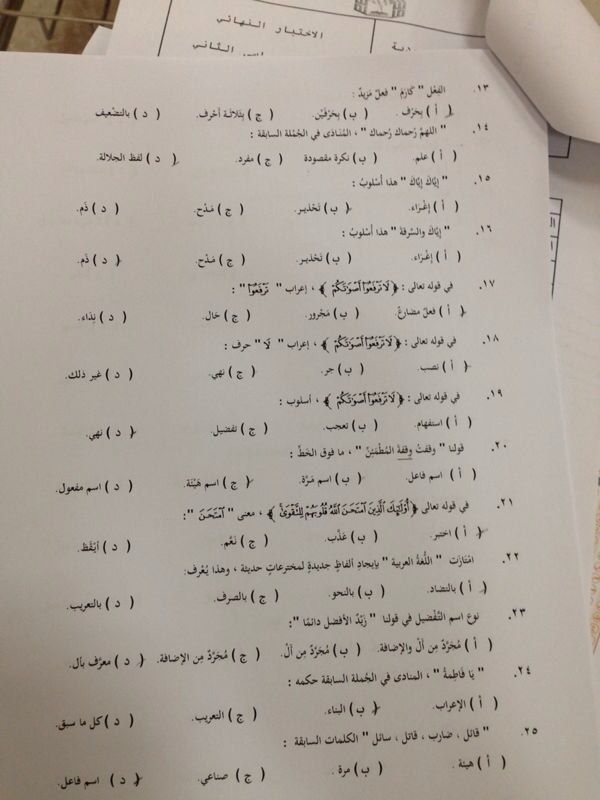 الاختبار النهائي
١٣. الفِعْل " كَارَمَ " فعلٌ مَزِيدٌ :
( أ ) بِحَرْف. ( ب ) بِحَرْفَيْن. ( ج ) بِثَلاثَـة أحْرف. ( د ) بالتضْعِيف
١٤. " اللهمَّ رُحماكَ رُحماك " ، المُنَادَى في الجُملة السابقة :
( أ ) علم. ( ب ) نكرة مقصودة ( ج ) مفرد. ( د ) لفظ الجلالة.
١٥. " إيَّاكَ إيَّاكَ " هذا أُسْلوبُ :
( أ ) إغْرَاء. ( ب ) تَحْذير. ( ج ) مَدْح. ( د ) ذَم.
١٦. " إيَّاكَ والسَّرِقَةَ " هذا أُسْلوبُ :
( أ ) إغْرَاء. ( ب ) تَحْذير. ( ج ) مَدْح. ( د ) ذَم.
١٧. في قوله تعالى : ﴿ لَا تَرْفَعُوٓا۟ أَصْوَٰتَكُمْ ﴾ ، إعراب " تَرْفَعُوٓا۟ " :
( أ ) فعلٌ مضارعٌ. ( ب ) مَجْرور. ( ج ) حَال. ( د ) نِدَاء.
١٨. في قوله تعالى : ﴿ لَا تَرْفَعُوٓا۟ أَصْوَٰتَكُمْ ﴾ ، إعراب " لَا " حرف :
( أ ) نصب. ( ب ) جر. ( ج ) نهي. ( د ) غير ذلك.
١٩. في قوله تعالى : ﴿ لَا تَرْفَعُوٓا۟ أَصْوَٰتَكُمْ ﴾ ، أسلوب :
( أ ) استفهام. ( ب ) تعجب. ( ج ) تفضيل. ( د ) نهي.
٢٠. قولنا " وقفتُ وِقفةَ المُطْمَئِنّ " ، ما فوق الخطّ :
( أ ) اسم فاعل. ( ب ) اسم مَرَّة. ( ج ) اسم هَيْئة. ( د ) اسم مفعول.
٢١. في قوله تعالى ﴿ أُو۟لَٰٓئِكَ ٱلَّذِينَ ٱمْتَحَنَ ٱللَّهُ قُلُوبَهُمْ لِلتَّقْوَىٰ ﴾ ، معنى " ٱمْتَحَنَ " :
( أ ) اختبر. ( ب ) عَذَّب. ( ج ) نَعَّم. ( د ) أيْقَظَ.
٢٢. امْتَازَت " اللُّغَةُ العربية " بإيجادِ ألفاظٍ جديدةٍ لمخترعاتٍ حديثة ، وهذا يُعْرف:
( أ ) بالتضاد. ( ب ) بالنحو. ( ج ) بالصرف. ( د ) بالتعريب.
٢٣. نوع اسم التَّفْضيل في قولنا " زَيْدٌ الأفضل دائمًا " :
( أ ) مُجَرَّدٌ مِن ألْ والإضافة. ( ب ) مُجَرَّدٌ مِن ألْ. ( ج ) مُجَرَّدٌ مِن الإضافة. ( د ) معرَّف بأل.
٢٤. " يَا فَاطِمةُ " ، المنادى في الجُملة السابقة حكمه :
( أ ) الإعراب. ( ب ) البناء. ( ج ) التعريب. ( د ) كل ما سبق.
٢٥. " قائل ، ضارب ، قاتل ، سائل " الكلمات السابقة :
( أ ) هيئة . ( ب ) مرة . ( ج ) صناعي . ( د ) اسم فاعل.